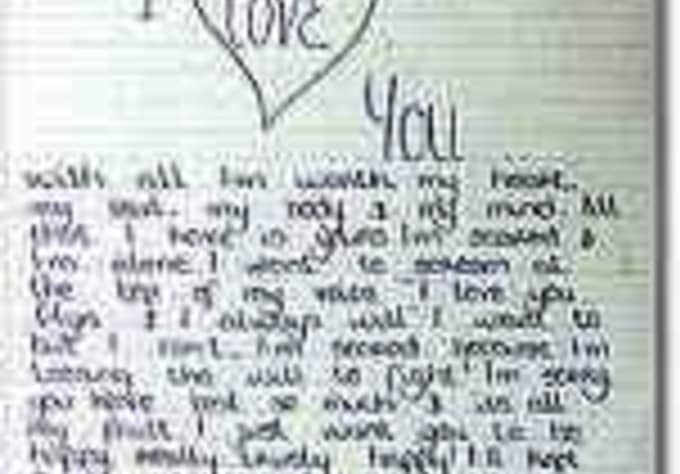 I
LOVE
YOU
with all I'm worth my heart,
my soul, my body & my mind. All
that I have is given I'm scared &
I'm alone I want to scream at
the top of my voice "I love you
& I always will" I want to
but I can't. I'm scared because I'm
loosing the will to fight! I'm sorry
you have lost so much & its all
my fault I just want you to be
happy really truely happy! I'll